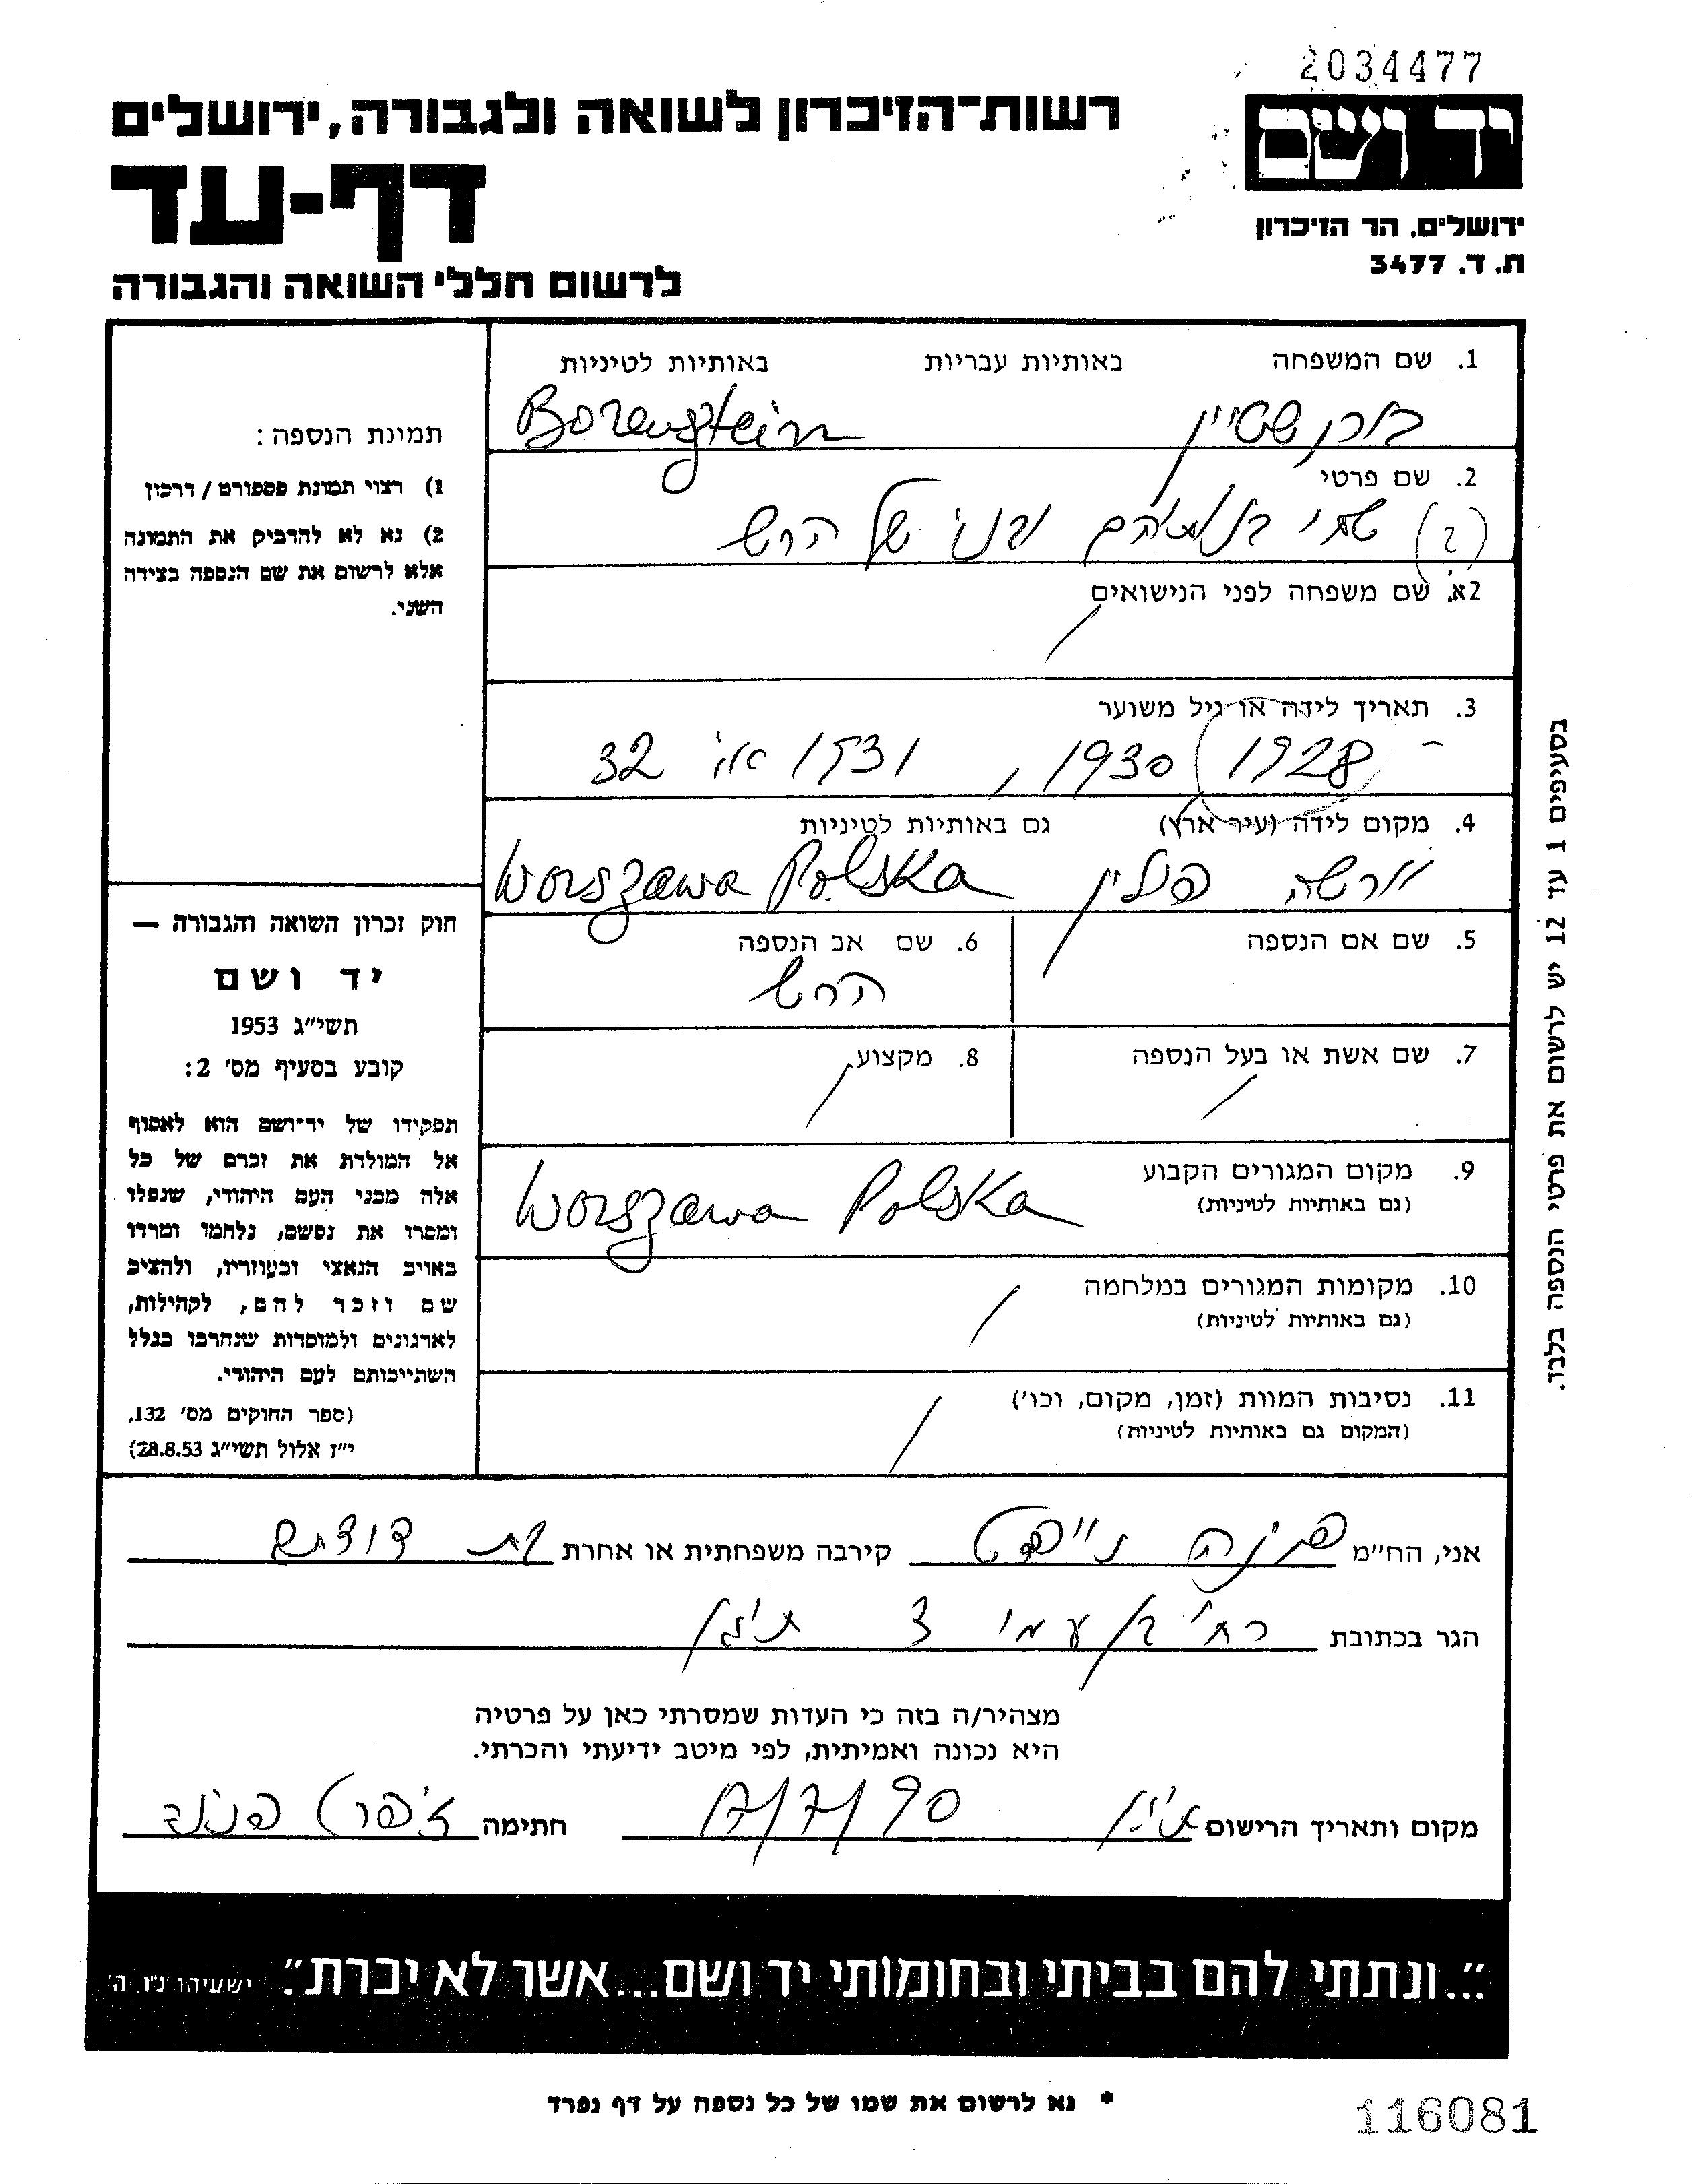 2034477
רשות־הזיכרון לשואה ולגבורה, ירושלים
יד ושם
דף-עד
ירושלים, הר הזיכרון
ת. ד. 3477
לרשום חללי השואה והגבורה
1. שם המשפחה באותיות עבריות באותיות לטיניות
בורנשטיין Borensztein
2. שם פרטי
(2) שתי בנותיהם ובני של הרש
2א. שם משפחה לפני הנישואים
3. תאריך לידה או גיל משוער
1928 1930, 1931 או 32
4. מקום לידה (עיר ארץ) גם באותיות לטיניות
וורשה פולין Worszawa Polska
5. שם אם הנספה
6. שם אב הנספה
הרש
7. שם אשת או בעל הנספה
8. מקצוע
9. מקום המגורים הקבוע
(גם באותיות לטיניות)
Worszawa Polska
10. מקומות המגורים במלחמה
(גם באותיות לטיניות)
11. נסיבות המוות (זמן, מקום, וכו')
(המקום גם באותיות לטיניות)
תמונת הנספה:
1) רצוי תמונת פספורט / דרכון
2) נא לא להדביק את התמונה
אלא לרשום את שם הנספה בצידה
השני.
חוק זכרון השואה והגבורה —
יד ושם
תשי"ג 1953
קובע בסעיף מס' 2:
תפקידו של יד־ושם הוא לאסוף
אל המולדת את זכרם של כל
אלה מבני העם היהודי, שנפלו
ומסרו את נפשם, נלחמו ומרדו
באויב הנאצי ובעוזריו, ולהציב
שם וזכר להם, לקהילות,
לארגונים ולמוסדות שנחרבו בגלל
השתייכותם לעם היהודי.
(ספר החוקים מס' 132,
י"ז אלול תשי"ג 28.8.53)
בסעיפים 1 עד 12 יש לרשום את פרטי הנספה בלבד.
אני, הח"מ קירבה משפחתית או אחרת בת דודתם
הגר בכתובת רח' בן עמי 3
מצהיר/ה בזה כי העדות שמסרתי כאן על פרטיה
היא נכונה ואמיתית, לפי מיטב ידיעתי והכרתי.
מקום ותאריך הרישום 17/7/90 חתימה
"...ונתתי להם בביתי ובחומותי יד ושם...אשר לא יכרת". ישעיהו נ"ו, ה'
* נא לרשום את שמו של כל נספה על דף נפרד
116081